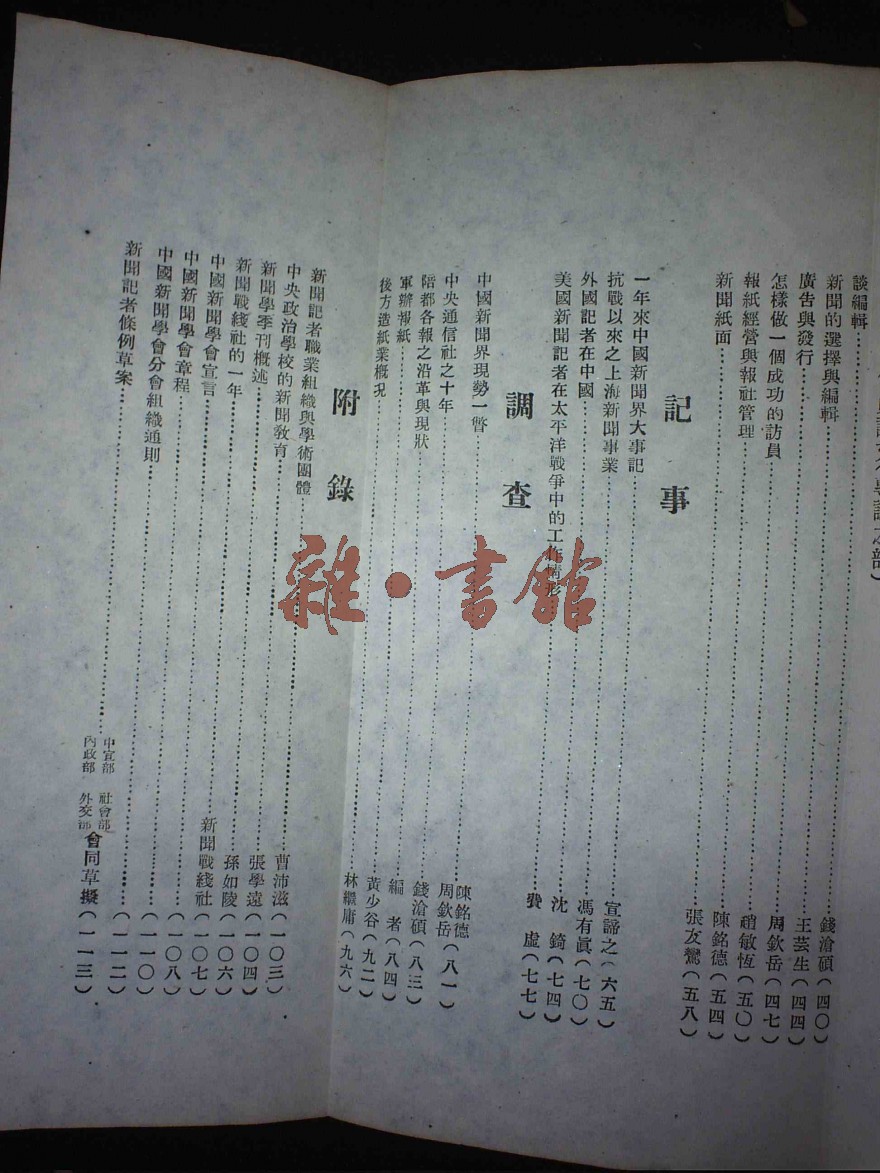 談編輯 錢滄碩(四〇)
新聞的選擇與編輯 王芸生(四四)
廣告與發行 周欽岳(四七)
怎樣做一個成功的訪員 趙敏恆(五〇)
報紙經營與報社管理 陳銘德(五四)
新聞紙面 張友鸞(五八)
記事
一年來中國新聞界大事記 宣諦之(六五)
抗戰以來之上海新聞事業 馮有眞(七〇)
外國記者在中國 沈錡(七四)
美國新聞記者在太平洋戰爭中的工作情形 虛(七七)
調查
中國新聞界現勢一瞥 陳銘德 周欽岳(八一)
中央通信社之十年 錢滄碩(八三)
陪都各報之沿革與現狀 編者(八四)
軍辦報紙 黃少谷(九二)
後方造紙業概况 林繼庸(九六)
附錄
新聞記者職業組織與學術團體 曹沛滋(一〇三)
中央政治學校的新聞教育 張學遠(一〇四)
新聞學季刊概述 孫如陵(一〇六)
新聞戰綫社的一年 新聞戰綫社(一〇七)
中國新聞學會宣言 (一〇八)
中國新聞學會章程 (一一〇)
中國新聞學會分會組織通則 (一一二)
新聞記者條例草案 中宣部 社會部 內政部 外交部 會同草擬(一一三)
雜·書館